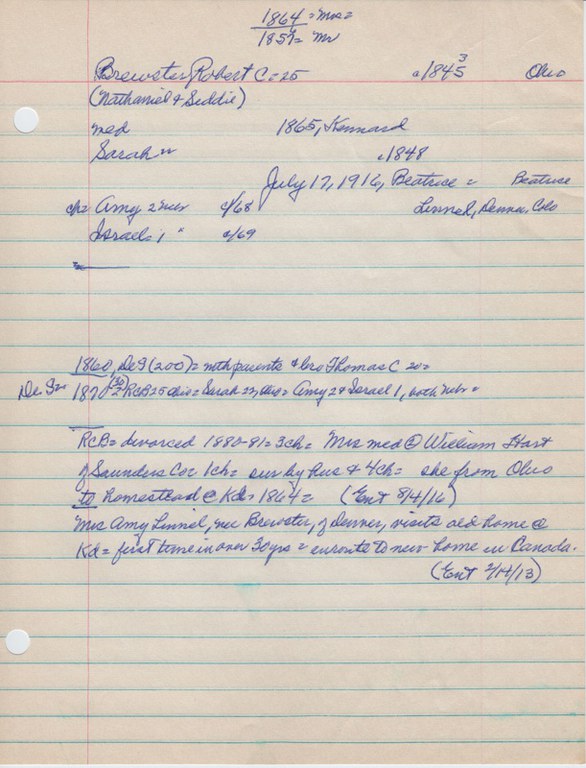 1864 = Mrs =
1857 = Mr
Brewster, Robert C = 25 c1845 3 Ohio
(Nathaniel & Seddie)
med 1865, Kennard
Sarah = c1848
July 17, 1916, Beatrice = Beatrice
ch = Amy 2 c/68 Linnel, Denver, Colo
Israel = 1 " c/69
1860, DeS (200) = with parents & bro Thomas C 20 =
DeS = 1870 RCB 25 Ohio = Sarah 22 Ohio = Amy 2 & Israel 1, both Neb =
RCB = divorced 1880-81 = 3ch = Mrs med @ William Hart
of Saunders Co = 1ch = sur by hus & 4ch = she from Ohio
to homestead @ Kd = 1864 = (Ent 8/4/16)
Mrs Amy Linnel, nee Brewster, of Denver, visits old home @
Kd = first time in over 30 yrs = enroute to new home in Canada.
(Ent 2/14/13)